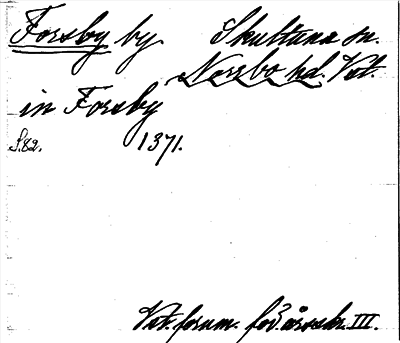 Forsby by Skultuna sn.
Norrbo hd. Vst.
in Forsby
S. 82. 1371.
Vst. fornm. för. årsskr. III.